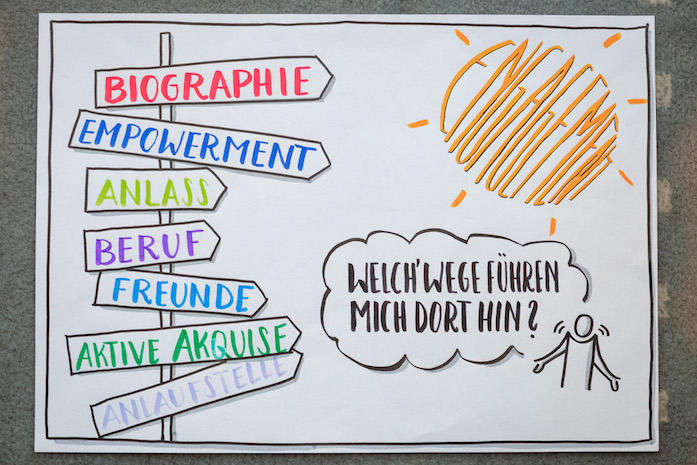 BIOGRAPHIE
EMPOWERMENT
ANLASS
BERUF
FREUNDE
AKTIVE AKQUISE
ANLAUFSTELLE
WELCH'WEGE FÜHREN
MICH DORT HIN?